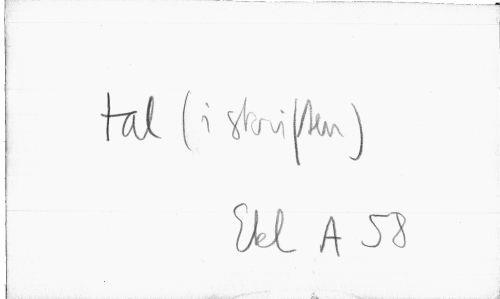 tal (i skriften)
Ekl A 58